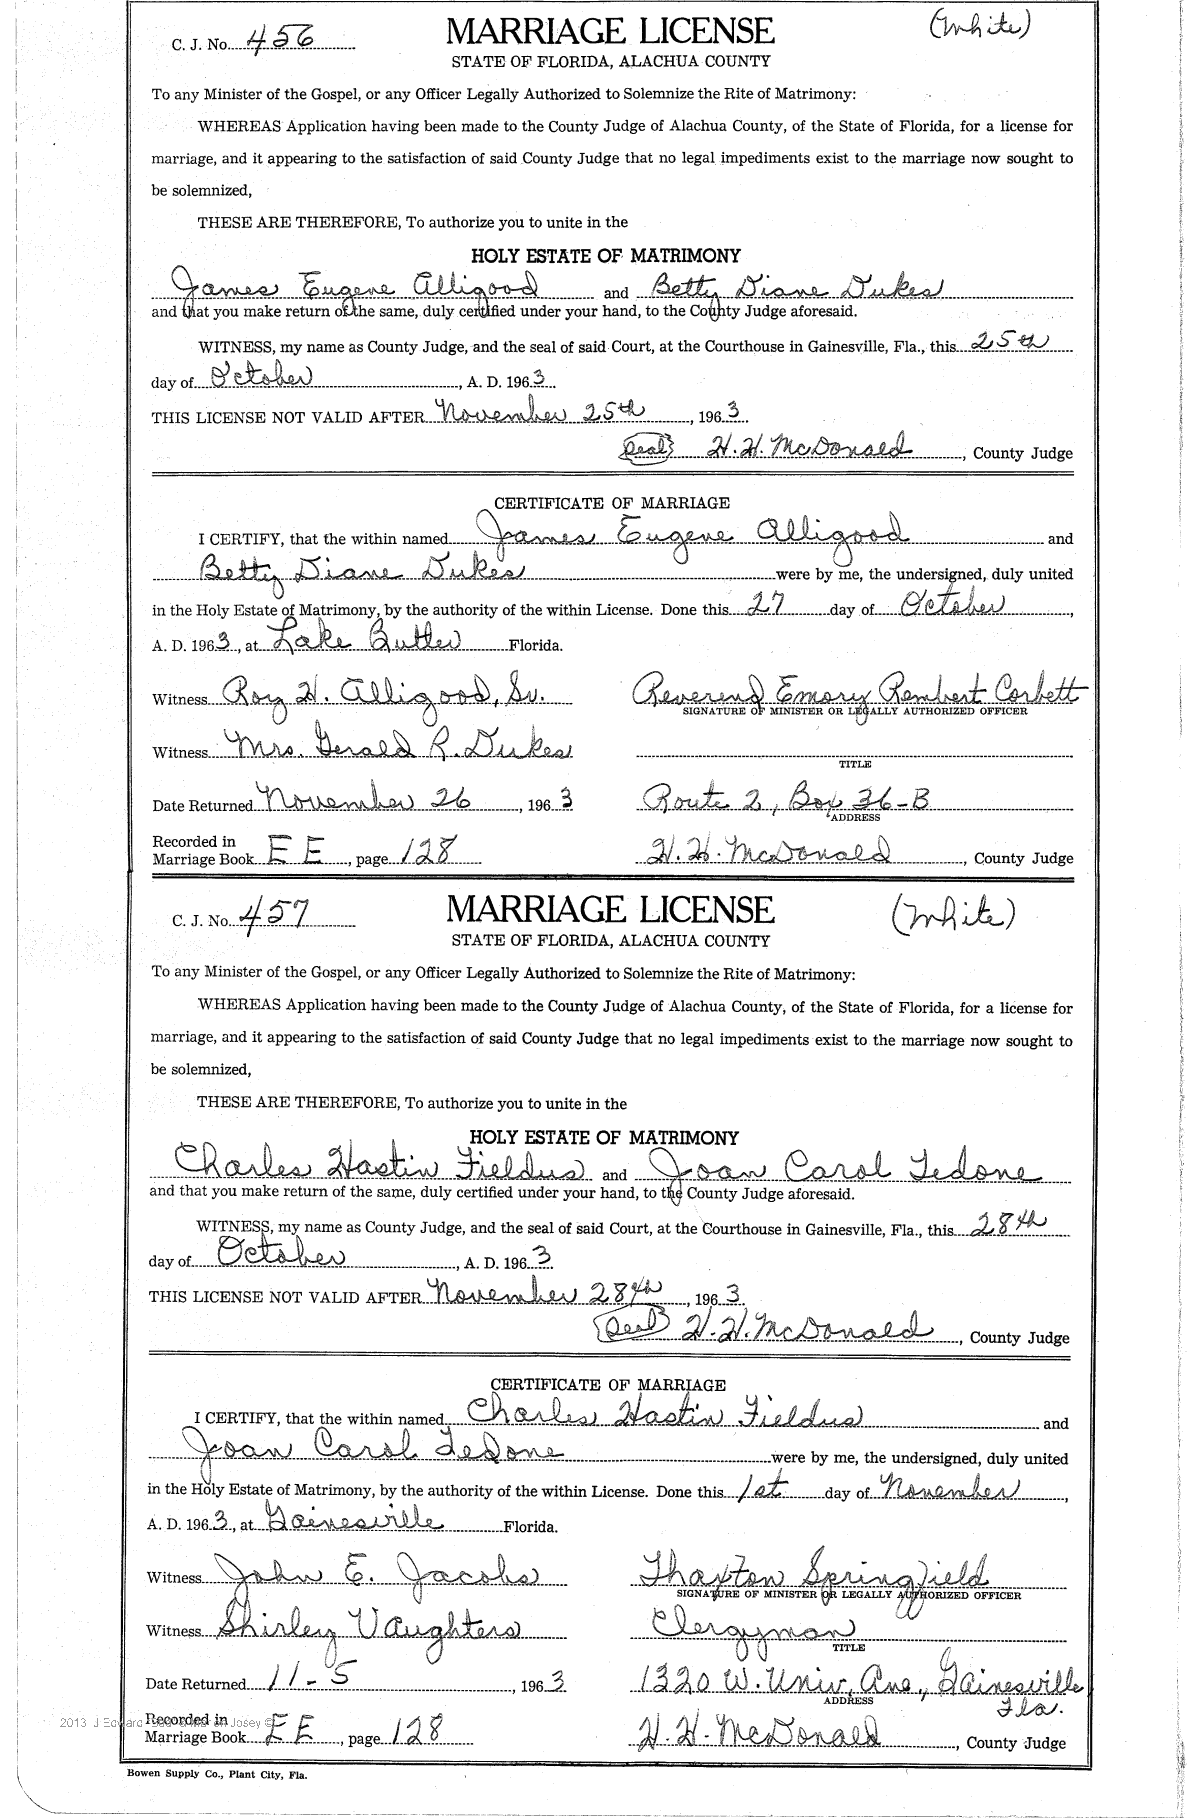 C. J. No. 456
MARRIAGE LICENSE
(White)
STATE OF FLORIDA, ALACHUA COUNTY
To any Minister of the Gospel, or any Officer Legally Authorized to Solemnize the Rite of Matrimony:
WHEREAS Application having been made to the County Judge of Alachua County, of the State of Florida, for a license for
marriage, and it appearing to the satisfaction of said County Judge that no legal impediments exist to the marriage now sought to
be solemnized,
THESE ARE THEREFORE, To authorize you to unite in the
HOLY ESTATE OF MATRIMONY
James Eugene Alligood and Betty Diane Dukes
and that you make return of the same, duly certified under your hand, to the County Judge aforesaid.
WITNESS, my name as County Judge, and the seal of said Court, at the Courthouse in Gainesville, Fla., this 25th
day of October, A. D. 1963
THIS LICENSE NOT VALID AFTER November 25th, 1963
(Seal) H. H. McDonald, County Judge
CERTIFICATE OF MARRIAGE
I CERTIFY, that the within named James Eugene Alligood and
Betty Diane Dukes were by me, the undersigned, duly united
in the Holy Estate of Matrimony, by the authority of the within License. Done this 27 day of October,
A. D. 1963, at Lake Butler Florida.
Witness Roy H. Alligood, Sr. Reverend Emory Rembert Corbett
SIGNATURE OF MINISTER OR LEGALLY AUTHORIZED OFFICER
Witness Mrs. Gerald R. Dukes
TITLE
Date Returned November 26, 1963 Route 2, Box 36-B
ADDRESS
Recorded in
Marriage Book EE, page 128 H. H. McDonald, County Judge
C. J. No. 457
MARRIAGE LICENSE
(White)
STATE OF FLORIDA, ALACHUA COUNTY
To any Minister of the Gospel, or any Officer Legally Authorized to Solemnize the Rite of Matrimony:
WHEREAS Application having been made to the County Judge of Alachua County, of the State of Florida, for a license for
marriage, and it appearing to the satisfaction of said County Judge that no legal impediments exist to the marriage now sought to
be solemnized,
THESE ARE THEREFORE, To authorize you to unite in the
HOLY ESTATE OF MATRIMONY
Charles Hastin Fieldus and Joan Carol Tedone
and that you make return of the same, duly certified under your hand, to the County Judge aforesaid.
WITNESS, my name as County Judge, and the seal of said Court, at the Courthouse in Gainesville, Fla., this 28th
day of October, A. D. 1963
THIS LICENSE NOT VALID AFTER November 28th, 1963
(Seal) H. H. McDonald, County Judge
CERTIFICATE OF MARRIAGE
I CERTIFY, that the within named Charles Hastin Fieldus and
Joan Carol Tedone were by me, the undersigned, duly united
in the Holy Estate of Matrimony, by the authority of the within License. Done this 1st day of November,
A. D. 1963, at Gainesville Florida.
Witness John E. Jacobs Thaxton Springfield
SIGNATURE OF MINISTER OR LEGALLY AUTHORIZED OFFICER
Witness Shirley Vaughters Clergyman
TITLE
Date Returned 11-5 1963 1320 W. Univ. Ave., Gainesville
ADDRESS Fla.
2013 J Edward Josey ©
Recorded in
Marriage Book EE, page 128 H. H. McDonald, County Judge
Bowen Supply Co., Plant City, Fla.